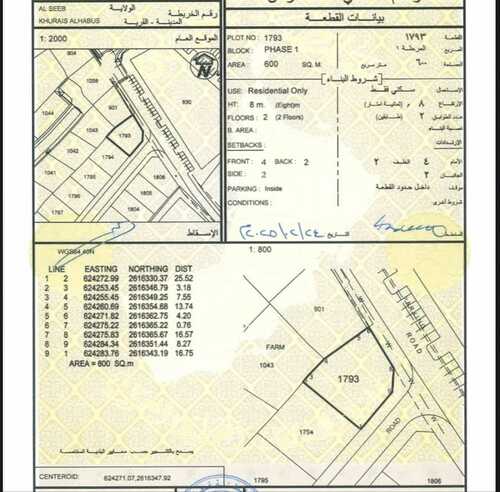 AL SEEB
KHURAIS ALHABUS
الولاية
المدينة - القرية
رقم الخريطة
1: 2000
الموقع العام
N
830
901
1044
1043
1793
1794
1042
1041
1795
1806
الإسقاط
WGS84 40N
بيانات القطعة
PLOT NO: 1793 ١٧٩٣ القطعة
BLOCK: PHASE 1 المرحلة ١ المربع
AREA: 600 SQ. M متر مربع ٦٠٠ المساحة
شروط البناء
USE: Residential Only سكني فقط الإستعمال
HT: 8 m. (Eight)m ٨ م (ثمانية أمتار) الإرتفاع
FLOORS: 2 (2 Floors) ٢ (طابقين) عدد الطوابق
B. AREA: نسبة البناء
SETBACKS: الإرتدادات
FRONT: 4 BACK: 2 ٢ الخلف ٤ الأمام
SIDE: 2 ٢ الجانبان
PARKING: Inside داخل حدود القطعة موقف
CONDITIONS: شروط أخرى
1: 800
LINE EASTING NORTHING DIST.
1 2 624272.99 2616330.37 25.52
2 3 624253.45 2616346.79 3.18
3 4 624255.45 2616349.25 7.55
4 5 624260.69 2616354.68 13.74
5 6 624271.82 2616362.75 4.20
6 7 624275.22 2616365.22 0.76
7 8 624275.83 2616365.67 16.57
8 9 624284.34 2616351.44 8.27
9 1 624283.76 2616343.19 16.75
AREA = 600 SQ.m
901
FARM
1043
1793
1794
ROAD
ROAD
1795
1806
يسمح بالتشجير حسب معايير البلدية المختصة
CENTEROID: 624271.07,2616347.92